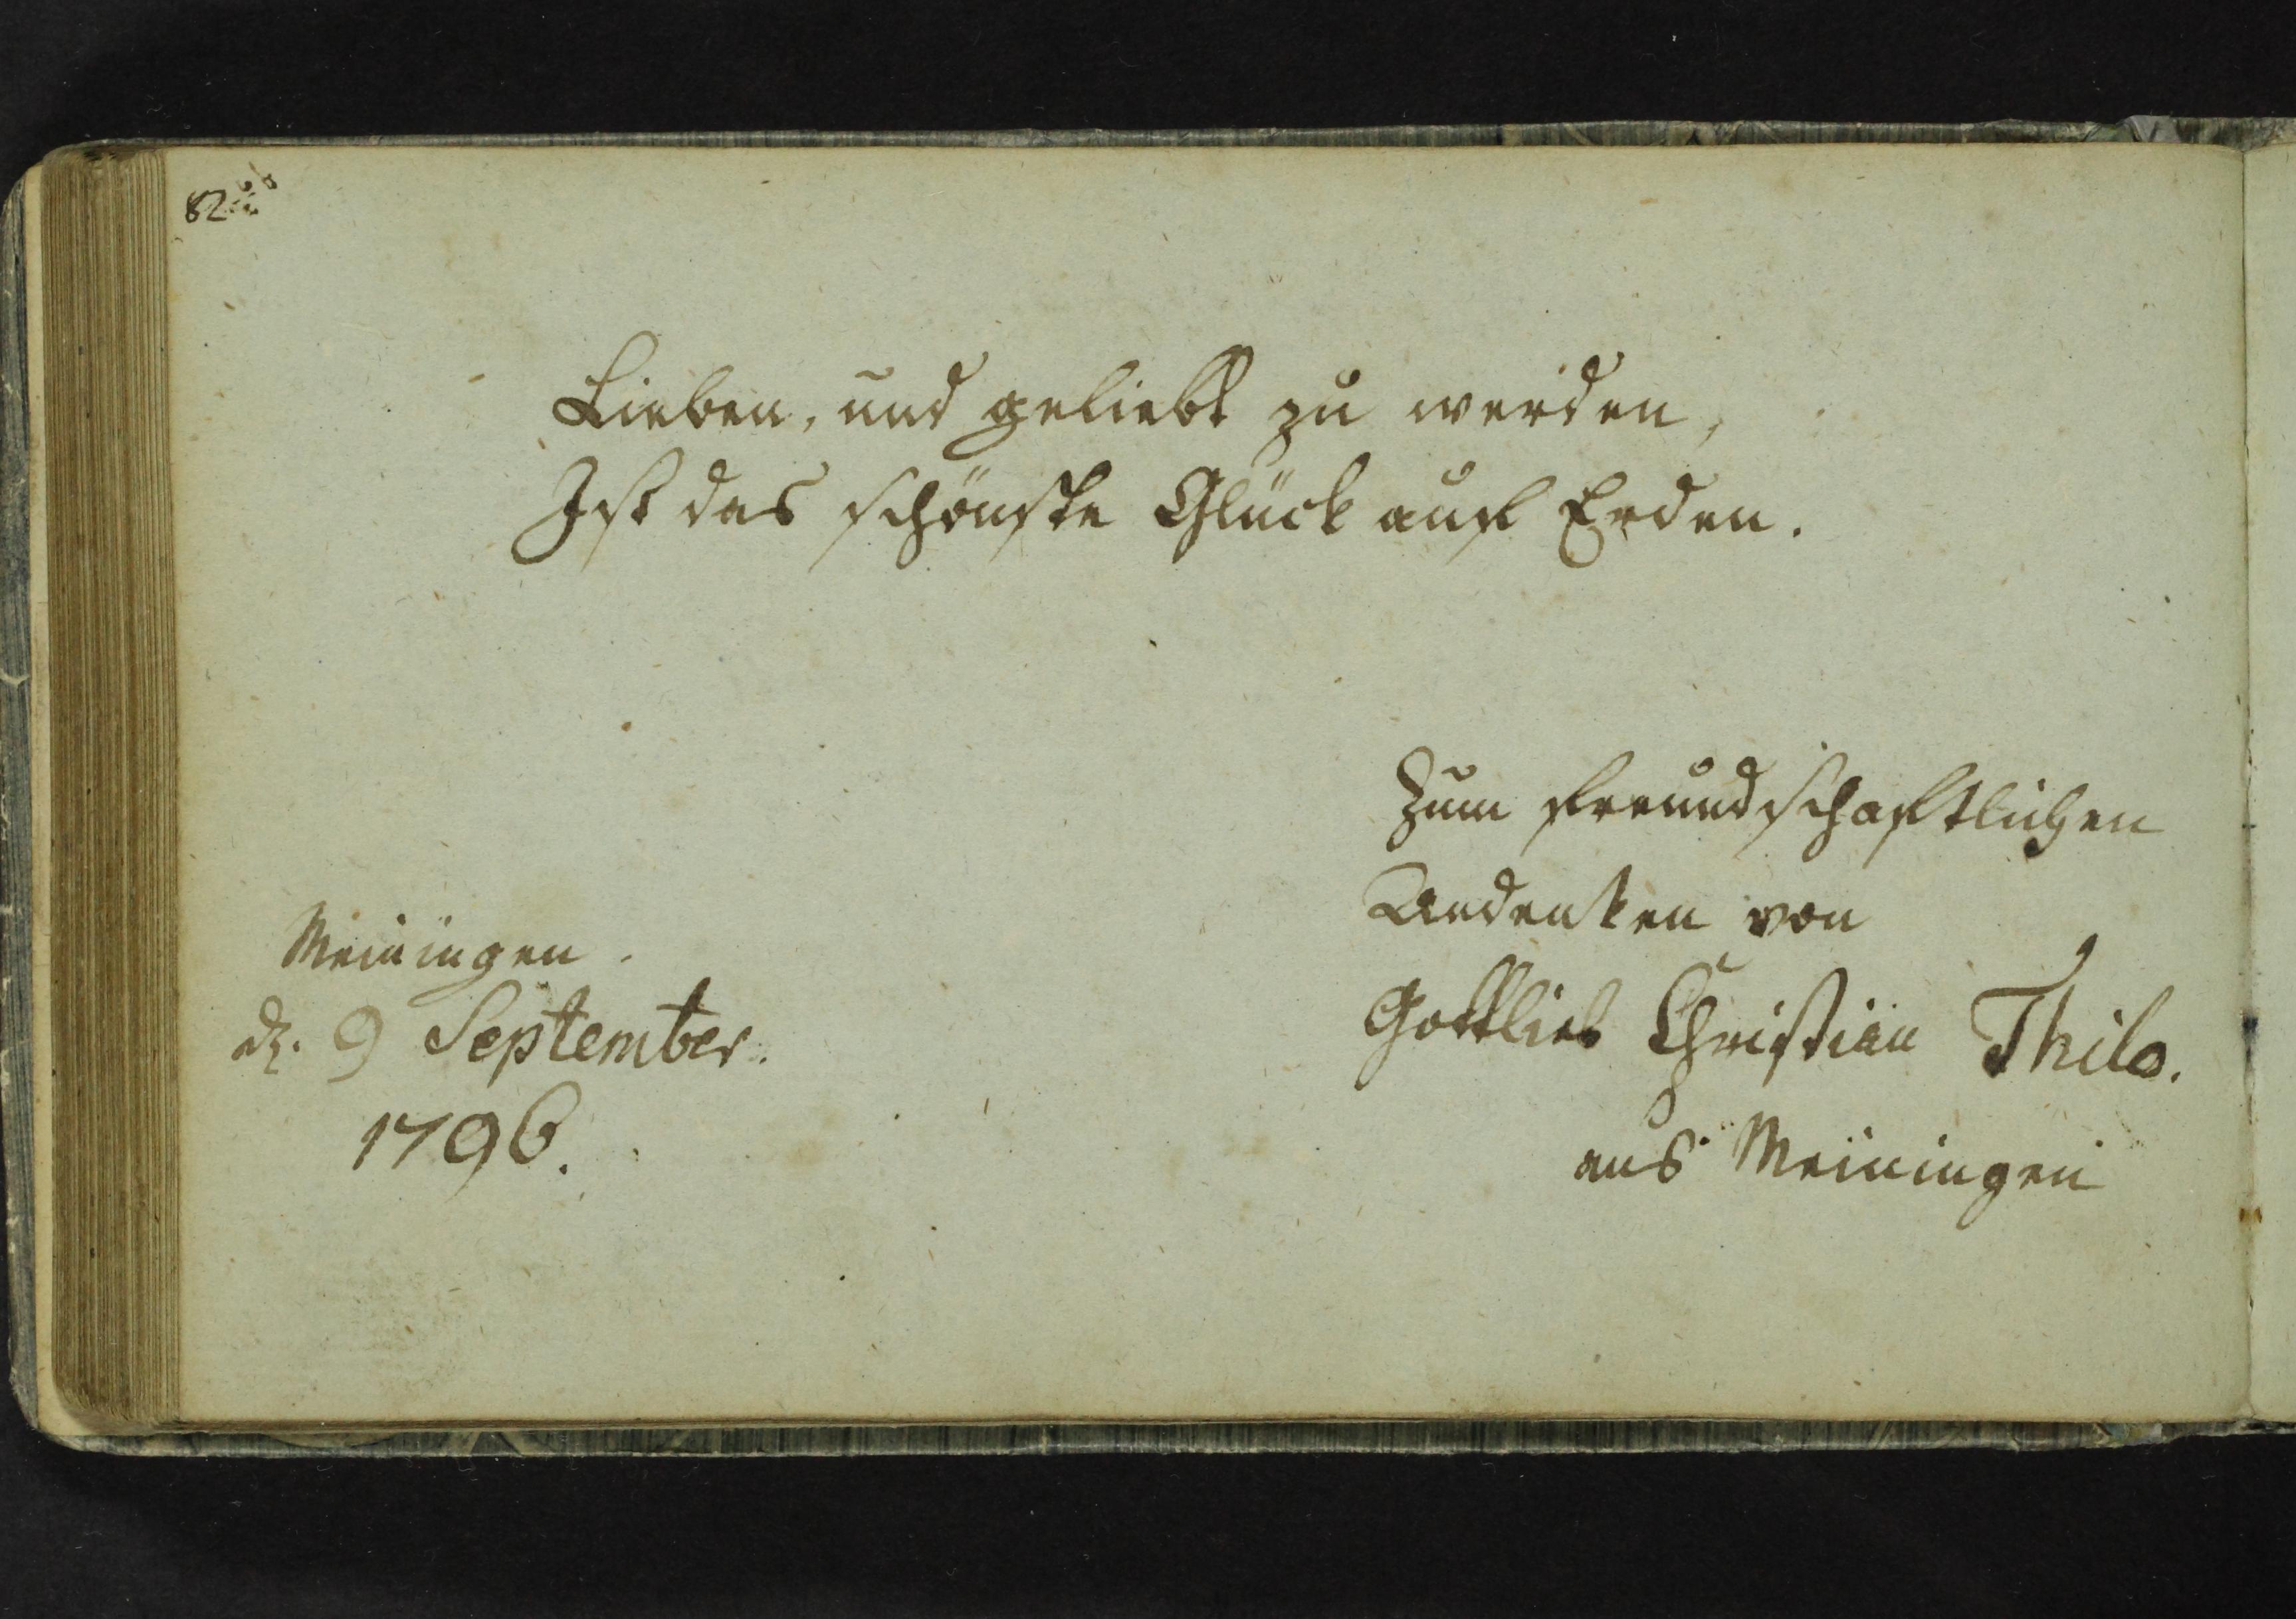 82
Lieben, und geliebt zu werden,
Ist das schönste Glück auf Erden.
Zum freundschaftlichen
Andenken von
Gottlieb Christian Thilo.
aus Meiningen
Meiningen.
d. 9 September.
1796.